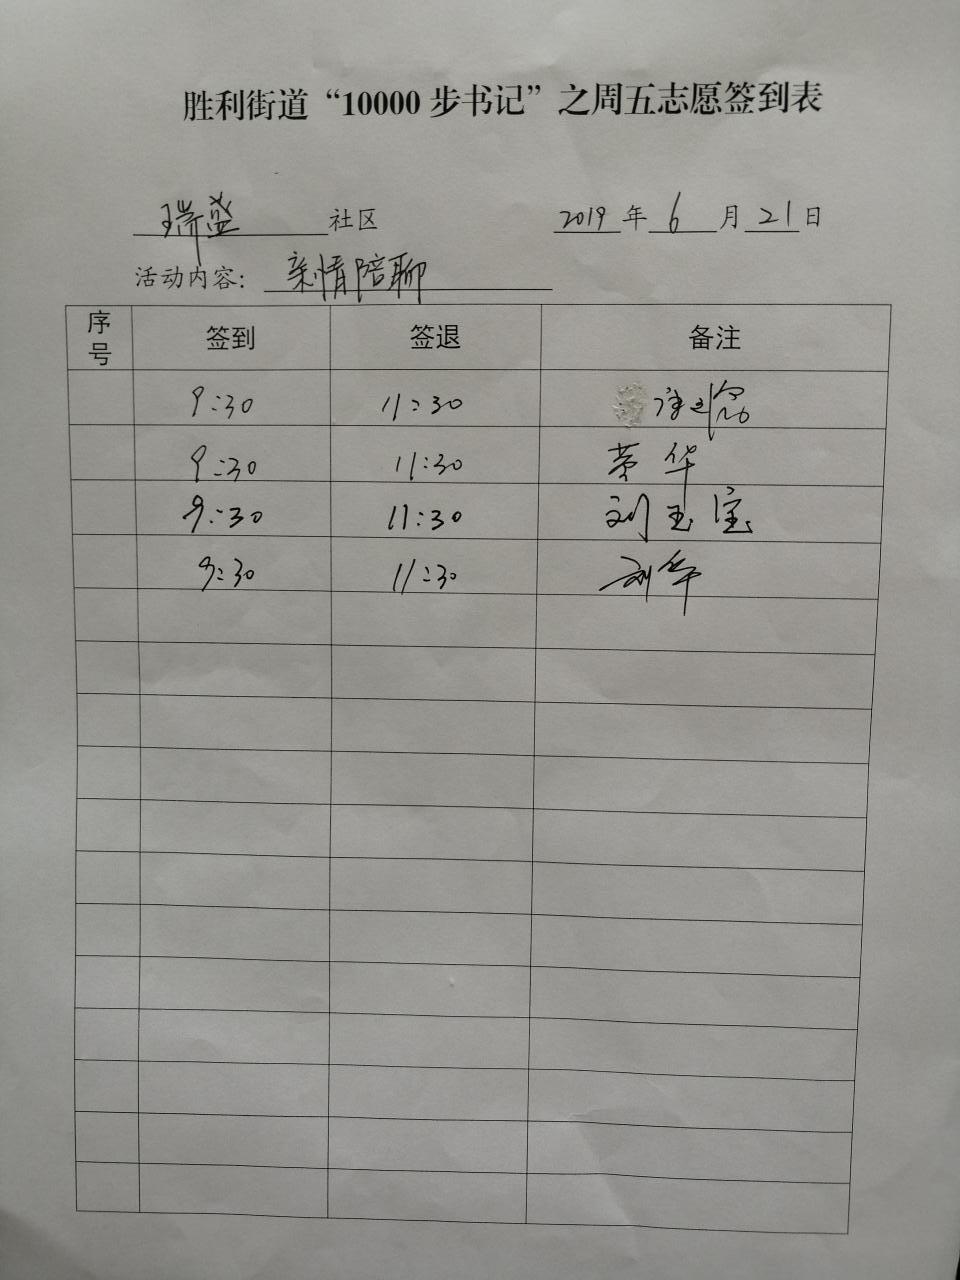 胜利街道“10000步书记”之周五志愿签到表
瑞盛社区 2019年6月21日
活动内容：亲情陪聊
序号 签到 签退 备注
9:30 11:30
9:30 11:30 荣华
9:30 11:30 刘玉宝
9:30 11:30 刘华